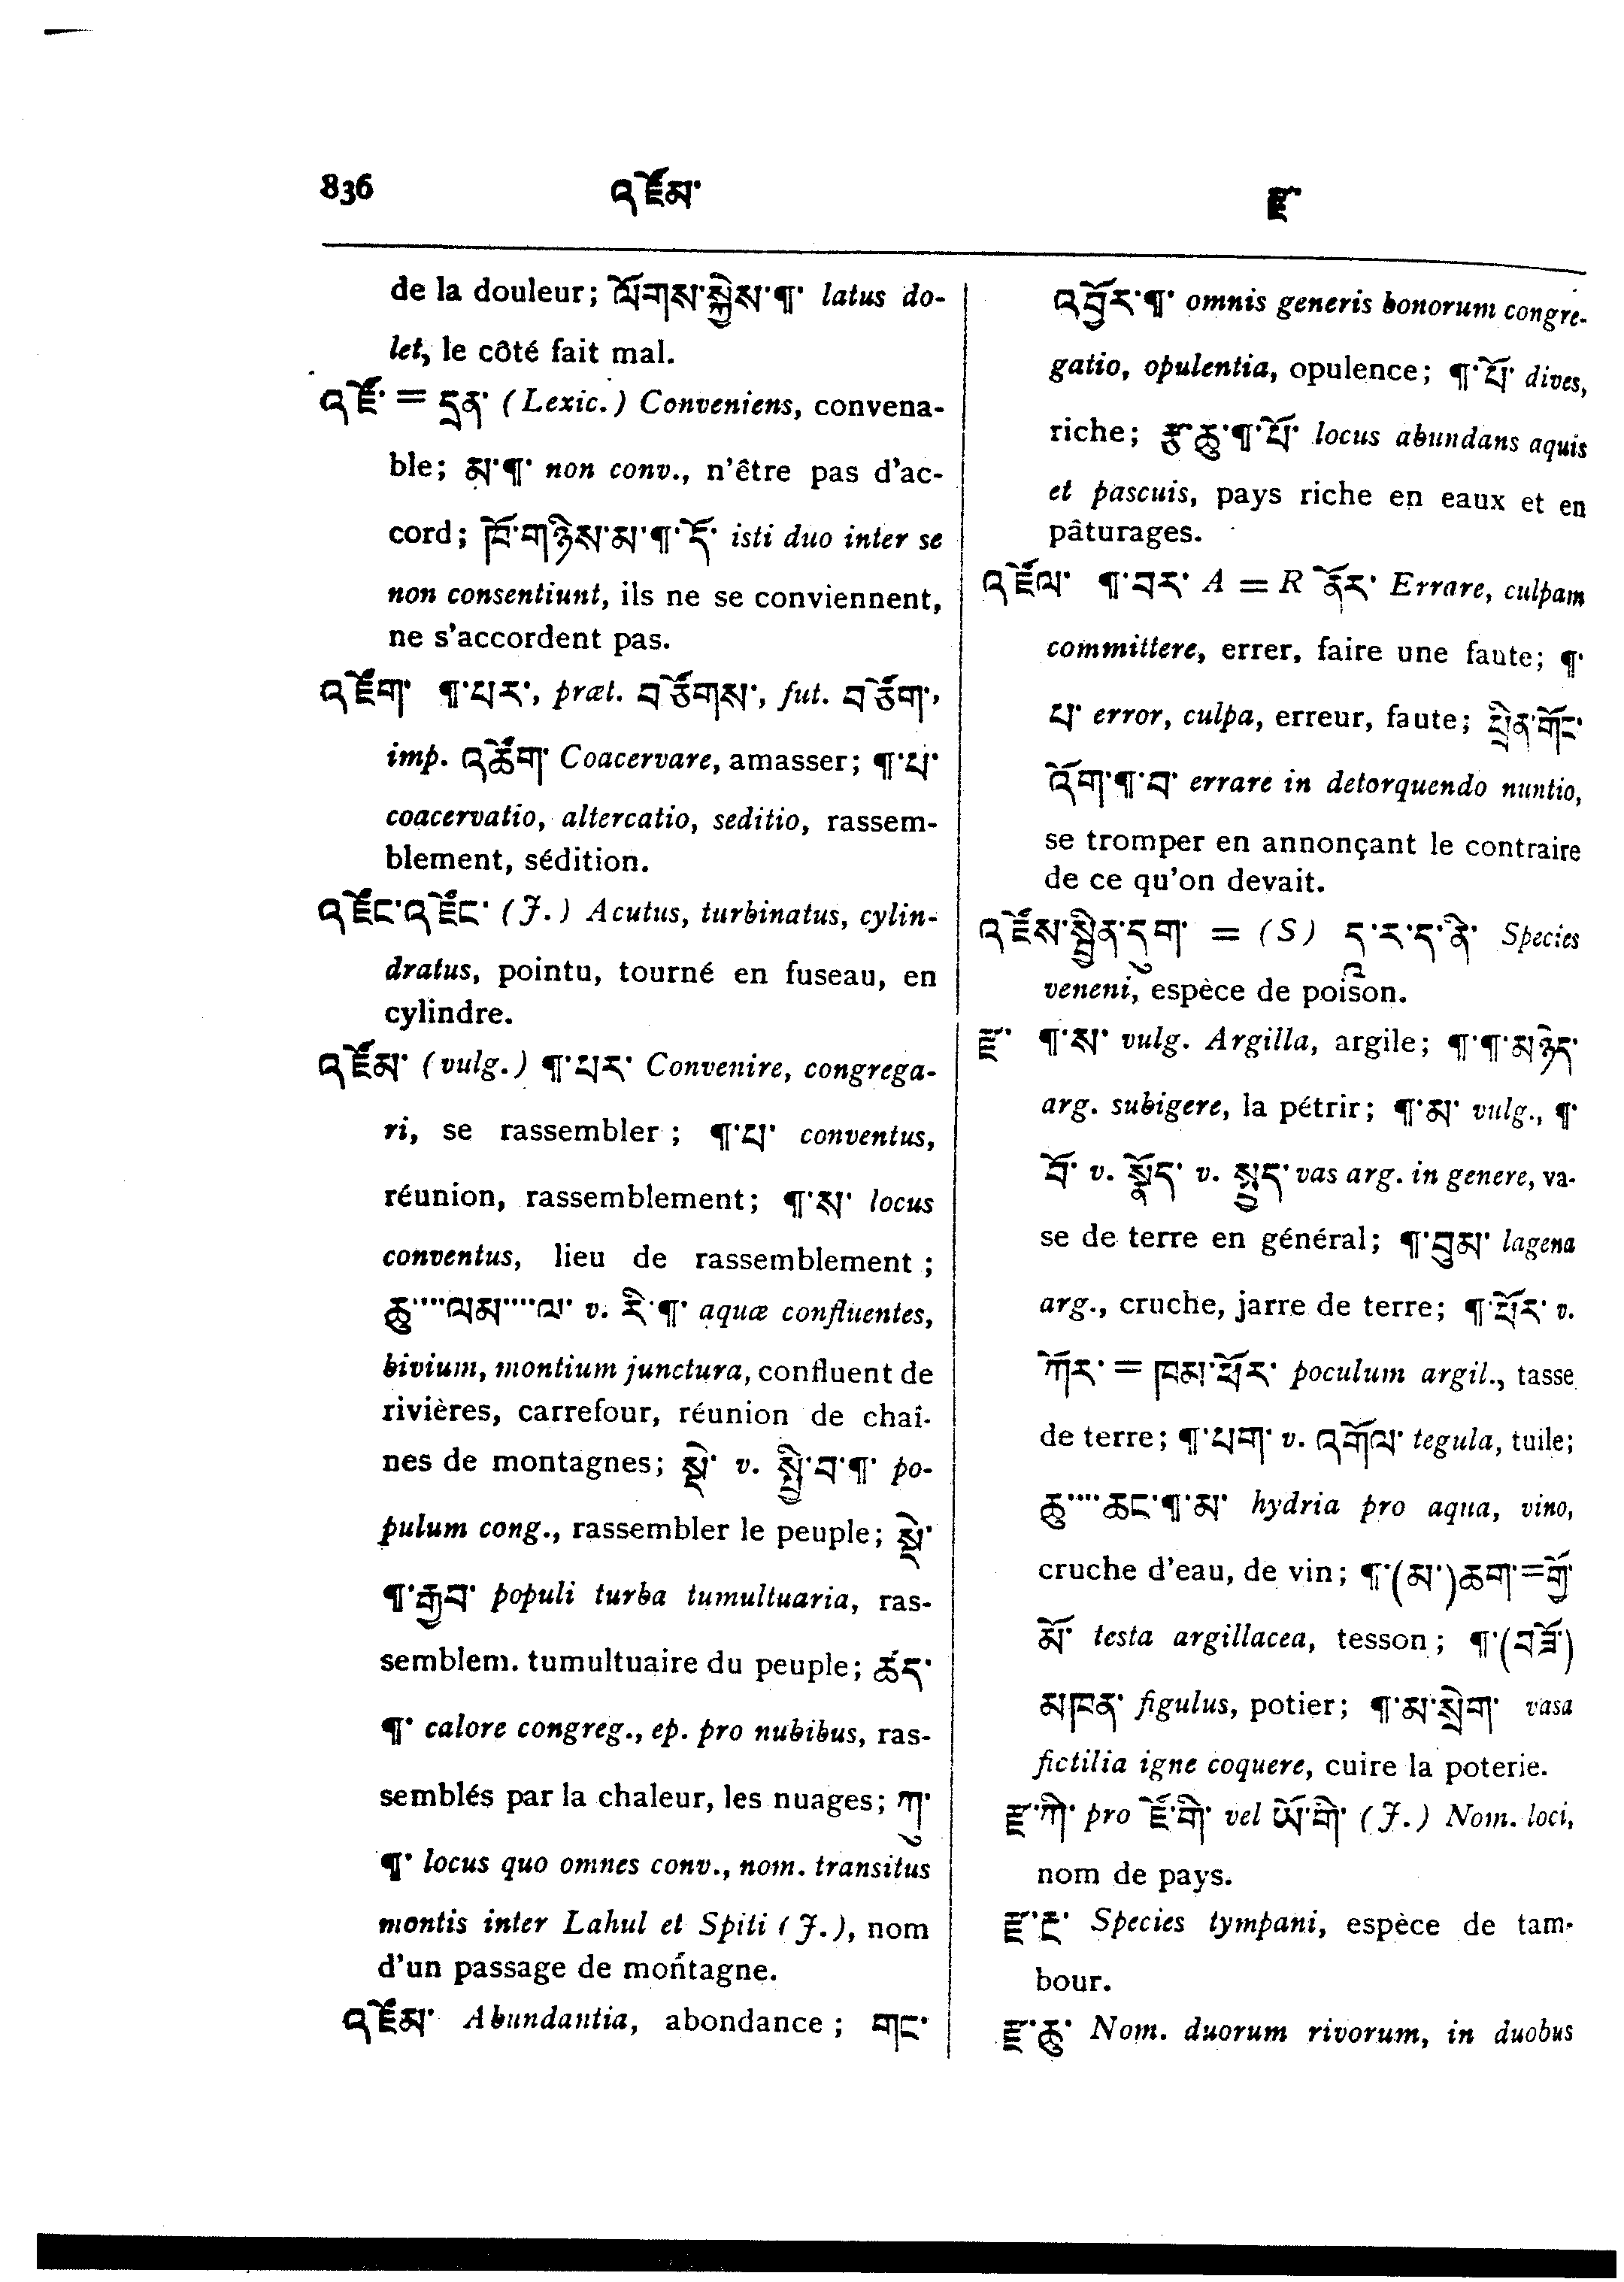 836 འཛོམ་ རྫ་
de la douleur; ལོགས་སྐྱེས་¶་ latus do-
let, le côté fait mal.
འཛོ་ = དྲན་ (Lexic.) Conveniens, convena-
ble; མ་¶་ non conv., n'être pas d'ac-
cord; ཁོ་གཉིས་མ་¶་དོ་ isti duo inter se
non consentiunt, ils ne se conviennent,
ne s'accordent pas.
འཛོག་ ¶་པར་, præt. བཙོགས་, fut. བཙོག་,
imp. འཚོག་ Coacervare, amasser; ¶་པ་
coacervatio, altercatio, seditio, rassem-
blement, sédition.
འཛོང་འཛོང་ (J.) Acutus, turbinatus, cylin-
dratus, pointu, tourné en fuseau, en
cylindre.
འཛོམ་ (vulg.) ¶་པར་ Convenire, congrega-
ri, se rassembler; ¶་པ་ conventus,
réunion, rassemblement; ¶་ས་ locus
conventus, lieu de rassemblement;
ཆུ་····ལམ་····ལ་ v. རི་¶་ aquæ confluentes,
bivium, montium junctura, confluent de
rivières, carrefour, réunion de chaî-
nes de montagnes; སྡེ་ v. མྱི་བ་¶་ po-
pulum cong., rassembler le peuple; སྡེ་
¶་རྒྱབ་ populi turba tumultuaria, ras-
semblem. tumultuaire du peuple; ཚད་
¶་ calore congreg., ep. pro nubibus, ras-
semblés par la chaleur, les nuages; ཀུ་
¶་ locus quo omnes conv., nom. transitus
montis inter Lahul et Spiti (J.), nom
d'un passage de montagne.
འཛོམ་ Abundantia, abondance; གང་
འབྱོར་¶་ omnis generis bonorum congre-
gatio, opulentia, opulence; ¶་པོ་ dives,
riche; རྩྭ་ཆུ་¶་པོ་ locus abundans aquis
et pascuis, pays riche en eaux et en
pâturages.
འཛོལ་ ¶་བར་ A = R ནོར་ Errare, culpam
committere, errer, faire une faute; ¶་
པ་ error, culpa, erreur, faute; པྲིན་གོང་
འོག་¶་བ་ errare in detorquendo nuntio,
se tromper en annonçant le contraire
de ce qu'on devait.
འཛོས་སྦྲིན་དུག་ = (S) ད་ར་ད་ནི་ Species
veneni, espèce de poison.
རྫ་ ¶་ས་ vulg. Argilla, argile; ¶་¶་མཉེད་
arg. subigere, la pétrir; ¶་མ་ vulg., ¶་
བོ་ v. སྣོད་ v. སྤྱད་ vas arg. in genere, va-
se de terre en général; ¶་བུམ་ lagena
arg., cruche, jarre de terre; ¶་ཕོར་ v.
ཀོར་ = ཁམ་ཕོར་ poculum argil., tasse
de terre; ¶་པག་ v. འགོལ་ tegula, tuile;
ཆུ་····ཆང་¶་མ་ hydria pro aqua, vino,
cruche d'eau, de vin; ¶་(མ་)ཆག་=གྱོ་
མོ་ testa argillacea, tesson; ¶་(བཟོ་)
མཁན་ figulus, potier; ¶་མ་སྲེག་ vasa
fictilia igne coquere, cuire la poterie.
རྫ་ཀི་ pro ཛོ་གི་ vel ཡོ་གི་ (J.) Nom. loci,
nom de pays.
རྫ་ང་ Species tympani, espèce de tam-
bour.
རྫ་ཆུ་ Nom. duorum rivorum, in duobus